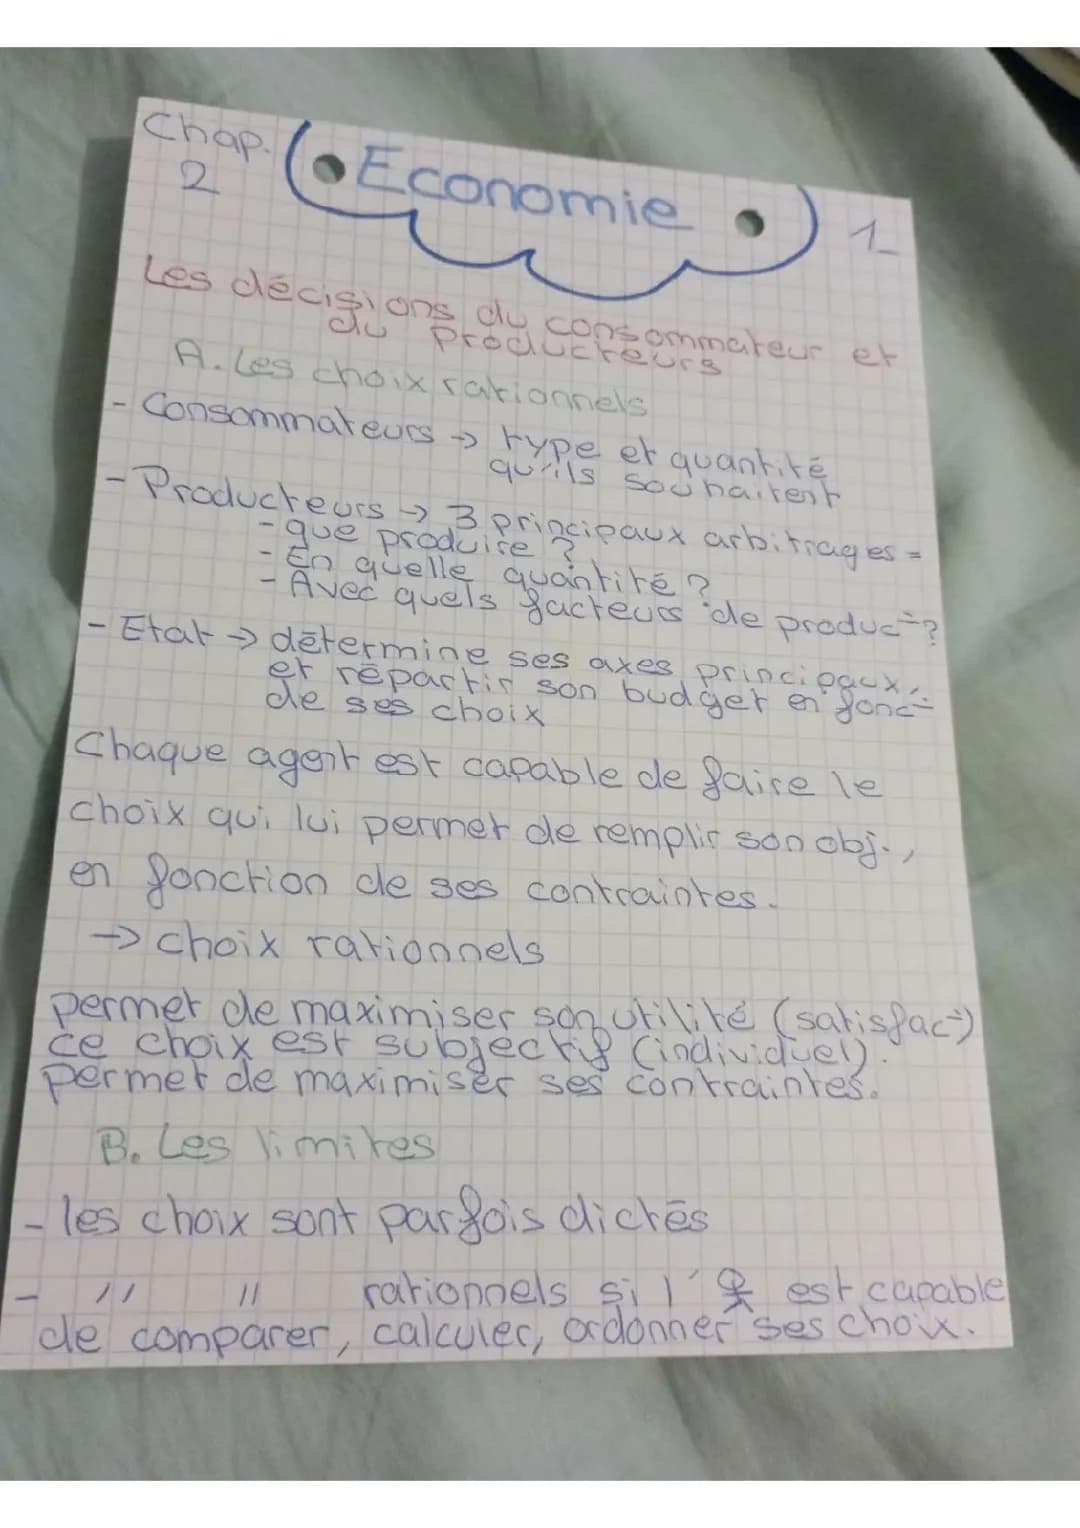 Chap. 2
Economie
1
Les décisions du consommateur et
du producteurs
A. Les choix rationnels
- Consommateurs → type et quantité
qu'ils souhaitent
- Producteurs → 3 principaux arbitrages =
- que produire ?
- En quelle quantité ?
- Avec quels facteurs de produc° ?
- Etat → détermine ses axes principaux,
et répartir son budget en fonc°
de ses choix
Chaque agent est capable de faire le
choix qui lui permet de remplir son obj.,
en fonction de ses contraintes.
→ choix rationnels
permet de maximiser son utilité (satisfac°)
ce choix est subjectif (individuel).
permet de maximiser ses contraintes.
B. Les limites
- les choix sont parfois dictés
- // // rationnels si l' est capable
de comparer, calculer, ordonner ses choix.